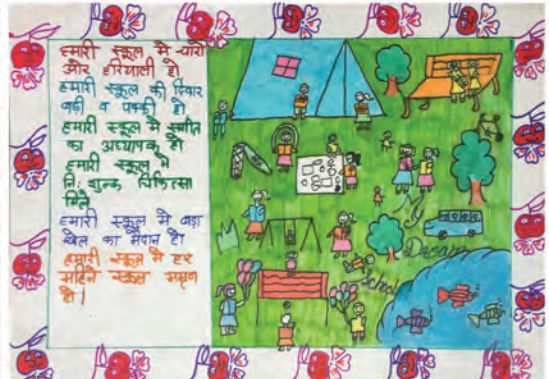 हमारी स्कूल मे चारो
और हरियाली हो
हमारी स्कूल की दिवार
बड़ी व पक्की हो
हमारी स्कूल मे संगीत
का अध्यापक हो
हमारी स्कूल मे
नि: शुल्क चिकित्सा
मिले
हमारी स्कूल मे बड़ा
खेल का मैदान हो
हमारी स्कूल मे हर
महिने स्कूल भ्रमण
हो।
My
Dream
School